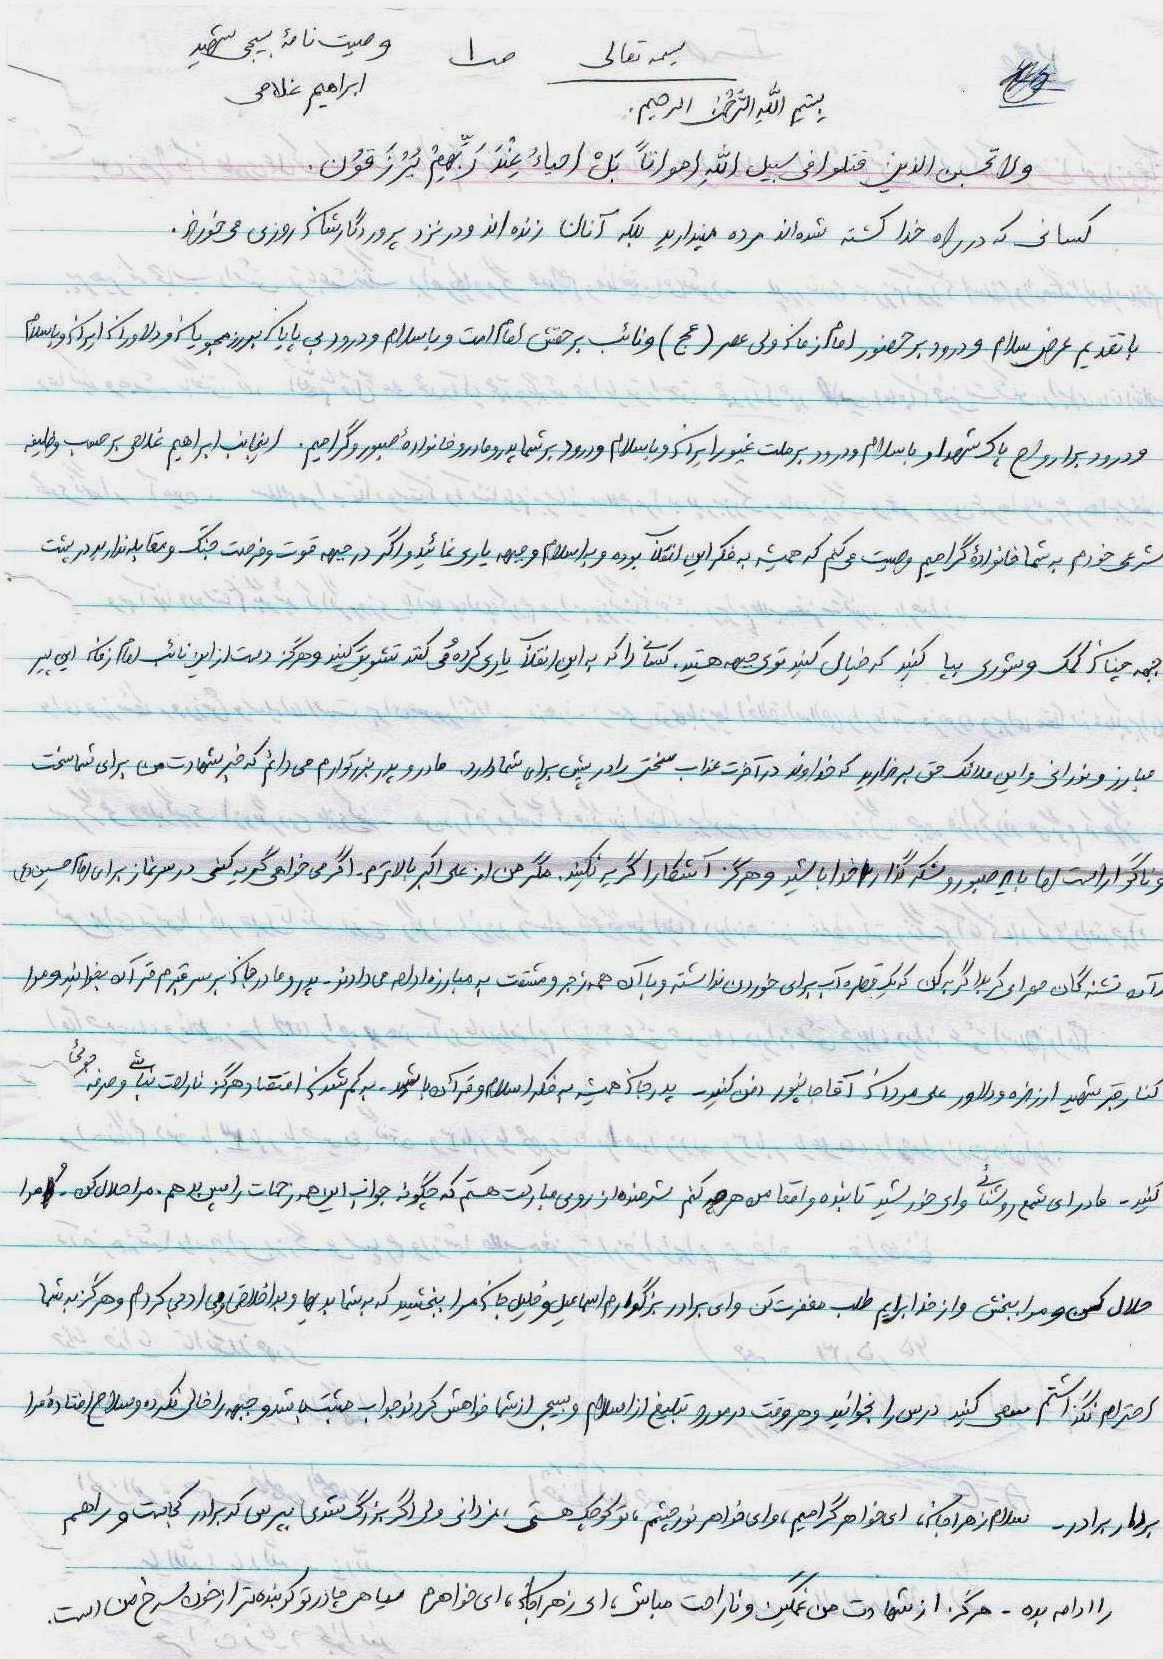 بسمه تعالی ص ۱ وصیت نامهٔ بسیجی شهید
ابراهیم غلامی
بسم اللهِ الرَّحمن الرحیم.
ولا تحسبن الذین قتلوا فی سبیل اللهِ امواتاً بَلْ احیاءُ عِنْدَ رَبِّهِمْ یُرْزَقوُن.
کسانی که در راه خدا کشته شده‌اند مرده مپندارید بلکه آنان زنده اند و در نزد پروردگارشان روزی می خورند.
با تقدیم عرض سلام و درود بر حضور امام زمان ولی عصر (عج) و نائب بر حقش امام امت و با سلام و درود بی پایان به رزمجویان و دلاوران ایران و با سلام
و درود بر ارواح پاک شهداء و با سلام و درود بر ملت غیور ایران و با سلام و درود بر شما پدر و مادر و خانوادهٔ صبور و گرامیم. اینجانب ابراهیم غلامی بر حسب وظیفه
شرعی خودم به شما خانوادهٔ گرامیم وصیت می کنم که همیشه به فکر این انقلاب بوده و به اسلام و جبهه یاری نمائید و اگر در جبهه قوت و فرصت جنگ و مقابله ندارید در پشت
جبهه چنان کمک و شوری بپا کنید که خیال کنید توی جبهه هستید. کسانی را که به این انقلاب یاری کرده می کنند تشویق کنید و هرگز دست از این نائب امام زمان این پیر
مبارز و نورانی و این ملائک حق بر ندارید که خداوند در آخرت عذاب سختی را در پیش برای شما دارد. مادر و پدر بزرگوارم می دانم که خبر شهادت من برای شما سخت
و ناگوار است اما باید صبور و شکرگذار خدا باشید و هرگز آشکارا گریه نکنید. مگر من از علی اکبر بالاترم. اگر می خواهی گریه کنی در سر نماز برای امام حسین (ع)
و آن تشنه گان صحرای کربلا گریه کن که یک قطره آب برای خوردن نداشته و با آن همه زجر و مشقت به مبارزه ادامه می دادند - پدر و مادر جان بر سر قبرم قرآن بخوانید و مرا
کنار قبر شهید ارزنده و دلاور علی مردان آقاجانپور دفن کنید - پدر جان همیشه به فکر اسلام و قرآن باشید - به کم شدن اقتصاد هرگز ناراحت نباشی و صرفه جوئی
کنید - مادر ای شمع روشنائی و ای خورشید تابنده واقعا من هر چه کنم شرمنده از روی مبارکت هستم که چگونه جواب این همه زحمات را پس بدهم. مرا حلال کن - مرا
حلال کن و مرا ببخش و از خدا برایم طلب مغفرت کن و ای برادر بزرگوارم اسماعیل و خلیل جان مرا ببخشید که به شما بدیها و بد اخلاقی و بی ادبی کردم و هرگز به شما
احترام نگذاشتم سعی کنید درس را بخوانید و هر وقت در مورد تبلیغ از اسلام و بسیج از شما خواهش کردند جواب مثبت باشد و جبهه را خالی نکرده و سلاح افتادهٔ مرا
بردار برادر - سلام زهرا جان، ای خواهر گرامیم، و ای خواهر نور چشم، تو کوچک هستی، نمی‌دانی ولی اگر بزرگ شدی بپرس که برادر کجاست و راهم
را ادامه بده - هرگز از شهادت من غمگین و ناراحت مباش، ای زهرا جان، ای خواهرم سیاهی چادر تو کوبنده تر از خون سرخ من است.